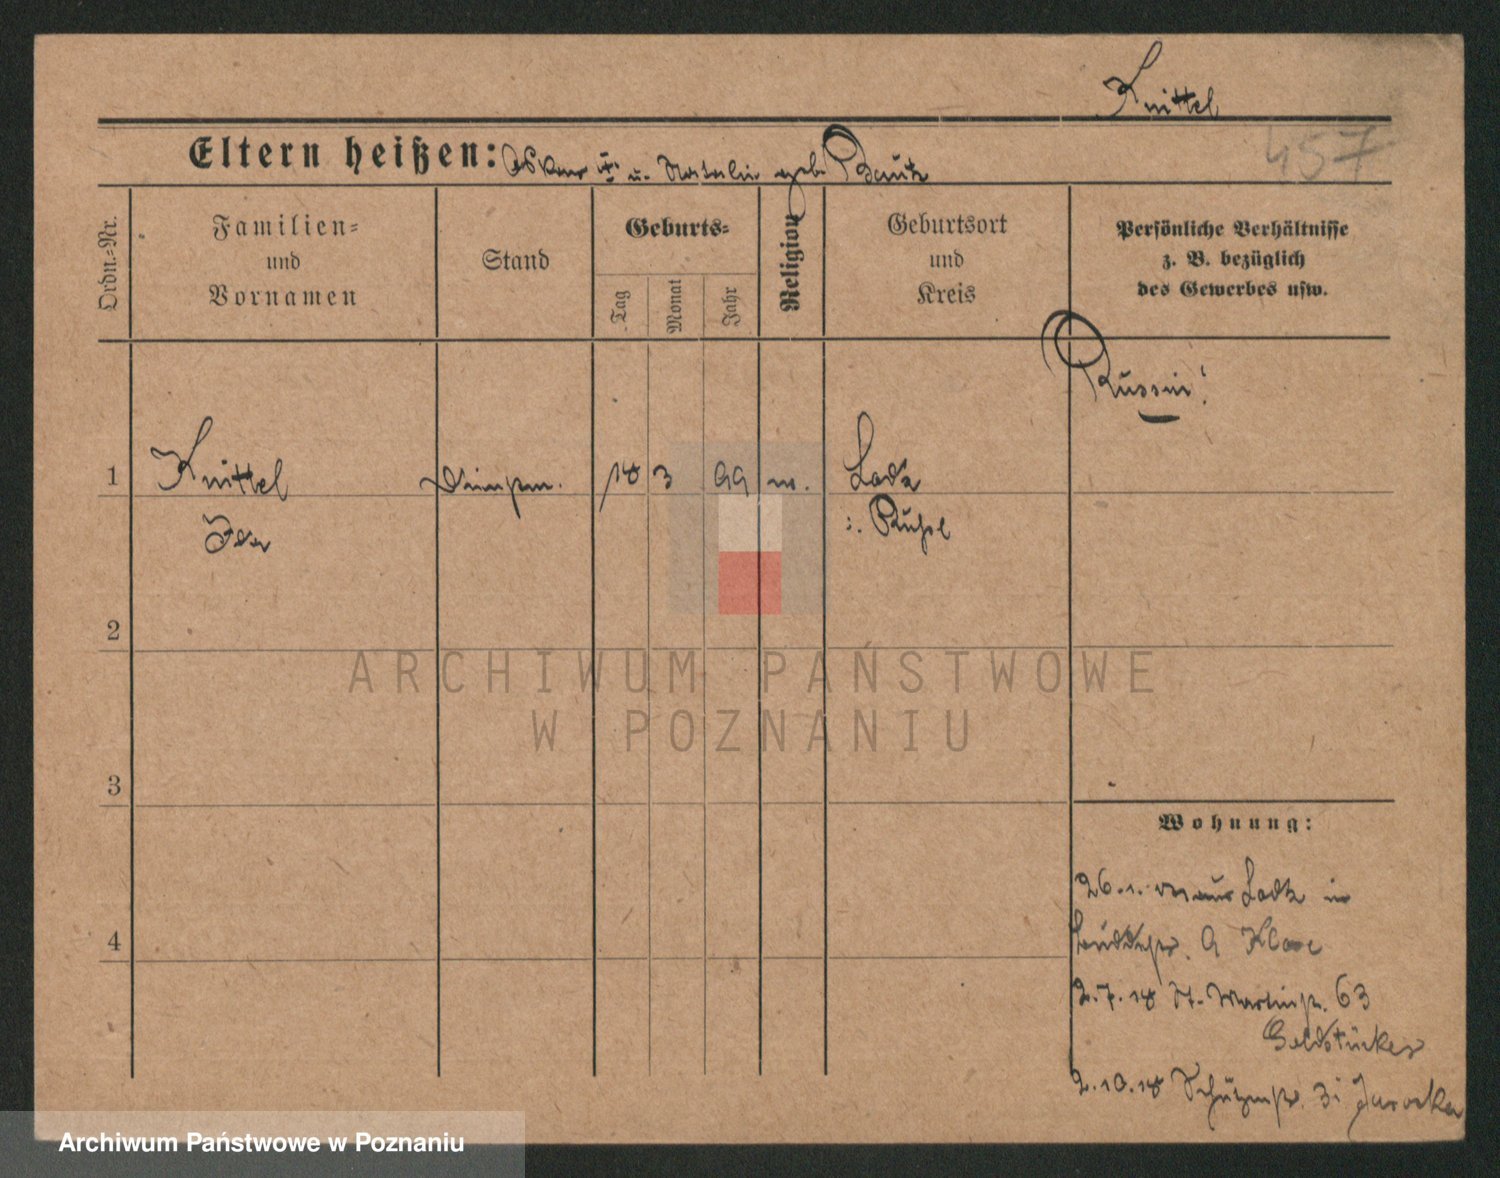 Knittel
457
Eltern heißen: Oskar u. Natalie geb. Bautz
Ordn.-Nr.
Familien-
und
Vornamen
Stand
Geburts-
Tag
Monat
Jahr
Religion
Geburtsort
und
Kreis
Persönliche Verhältnisse
z. B. bezüglich
des Gewerbes usw.
Russin!
1 Knittel 18 3 99 Lodz
Ida i. Rußl
2
3
Wohnung:
26.1. aus Lodz in
9 Klose
4
2.7.18 St. Martinstr. 63
Goldstücker
2.10.18 Schützenstr. 31
ARCHIWUM PAŃSTWOWE
W POZNANIU
Archiwum Państwowe w Poznaniu